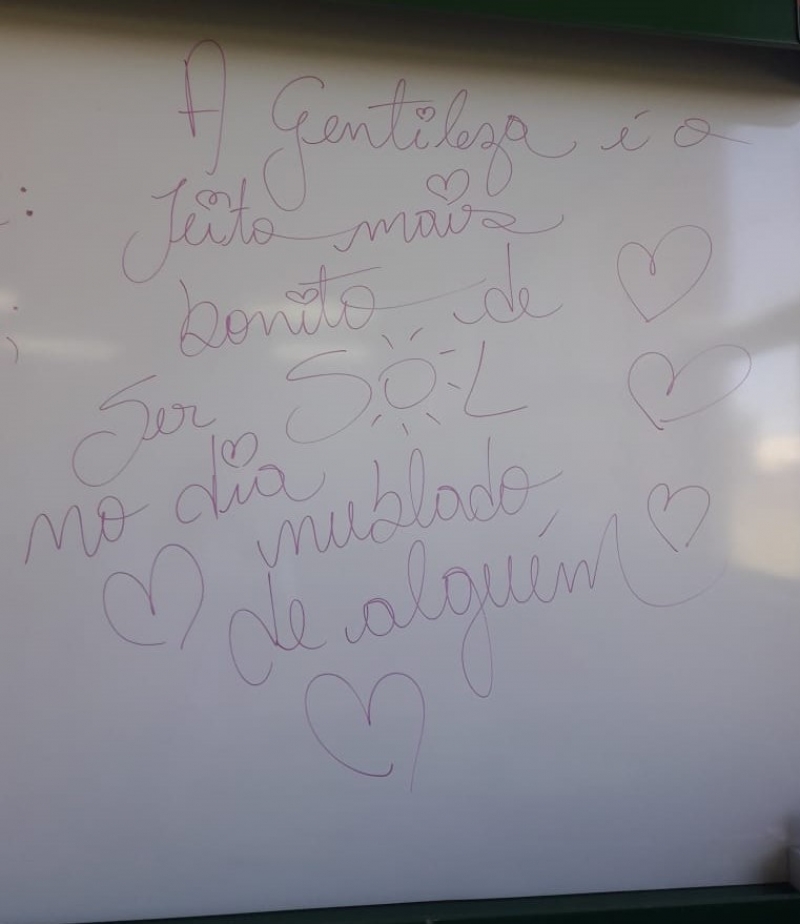 A Gentileza é o
Jeito mais
bonito de
Ser SOL
no dia nublado
de alguém